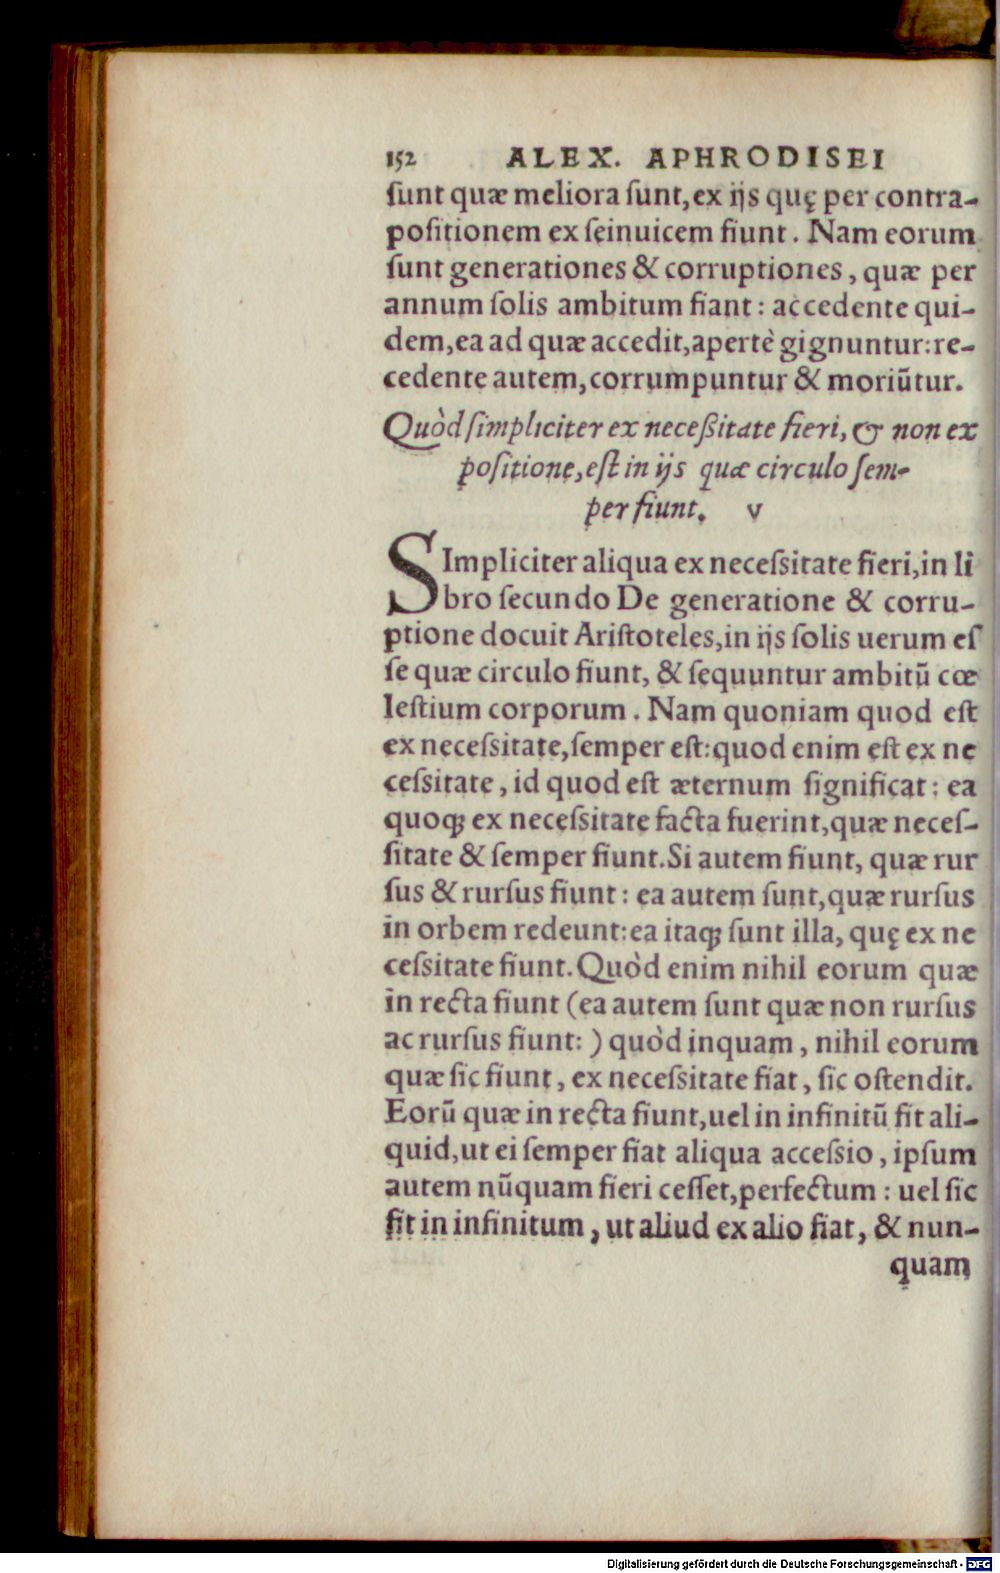 152 ALEX. APHRODISEI
ſunt quæ meliora ſunt, ex ijs quę per contra-
poſitionem ex ſeinuicem fiunt. Nam eorum
ſunt generationes & corruptiones, quæ per
annum ſolis ambitum fiant: accedente qui-
dem, ea ad quæ accedit, apertè gignuntur: re-
cedente autem, corrumpuntur & moriũtur.
Quòd ſimpliciter ex neceßitate fieri, & non ex
poſitione, eſt in ijs quæ circulo ſem-
per fiunt. V
SImpliciter aliqua ex neceſsitate fieri, in li
bro ſecundo De generatione & corru-
ptione docuit Ariſtoteles, in ijs ſolis uerum eſ
ſe quæ circulo fiunt, & ſequuntur ambitũ cœ
leſtium corporum. Nam quoniam quod eſt
ex neceſsitate, ſemper eſt: quod enim eſt ex ne
ceſsitate, id quod eſt æternum ſignificat: ea
quoq; ex neceſsitate facta fuerint, quæ neceſ-
ſitate & ſemper fiunt. Si autem fiunt, quæ rur
ſus & rurſus fiunt: ea autem ſunt, quæ rurſus
in orbem redeunt: ea itaq; ſunt illa, quę ex ne
ceſsitate fiunt. Quòd enim nihil eorum quæ
in recta fiunt (ea autem ſunt quæ non rurſus
ac rurſus fiunt: ) quòd inquam, nihil eorum
quæ ſic fiunt, ex neceſsitate fiat, ſic oſtendit.
Eorũ quæ in recta fiunt, uel in infinitũ fit ali-
quid, ut ei ſemper fiat aliqua acceſsio, ipſum
autem nũquam fieri ceſſet, perfectum: uel ſic
fit in infinitum, ut aliud ex alio fiat, & nun-
quam
Digitalisierung gefördert durch die Deutsche Forschungsgemeinschaft - DFG